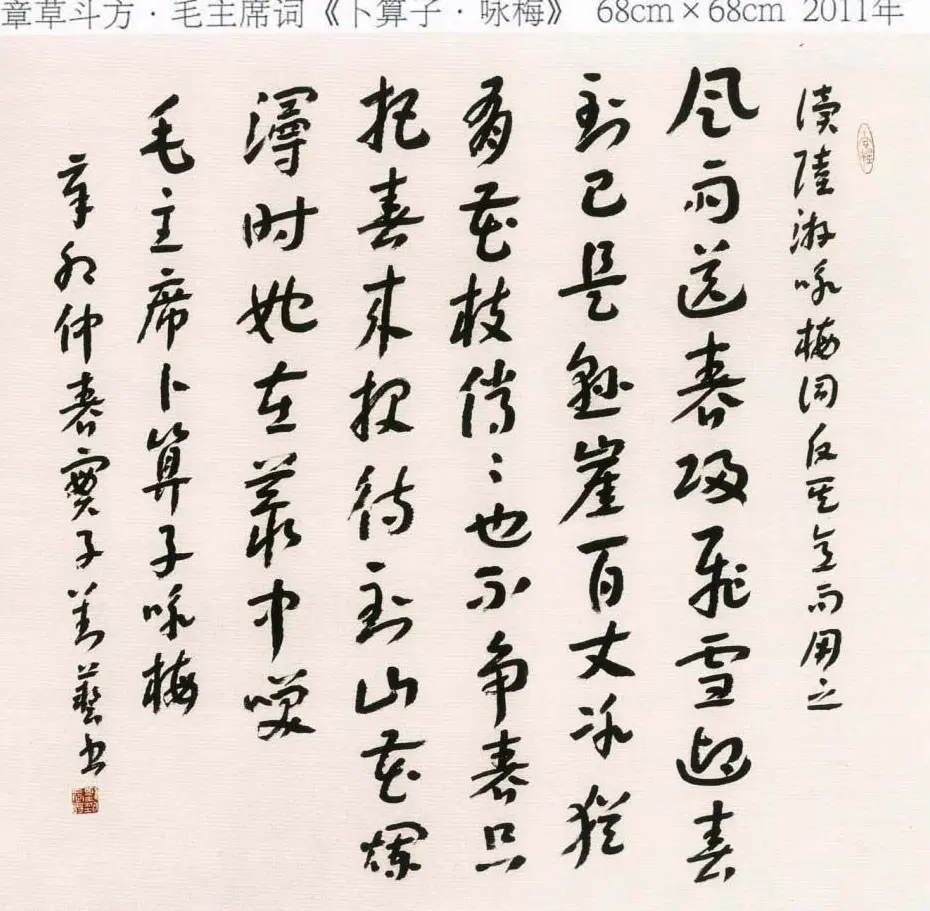 章草斗方·毛主席词《卜算子·咏梅》 68cm×68cm 2011年
读陸游咏梅词反其意而用之
风雨送春归飛雪迎春
到已是懸崖百丈冰犹
有花枝俏〻也不争春只
把春来报待到山花爛
漫时她在叢中笑
毛主席卜算子咏梅
辛卯仲春子藝书